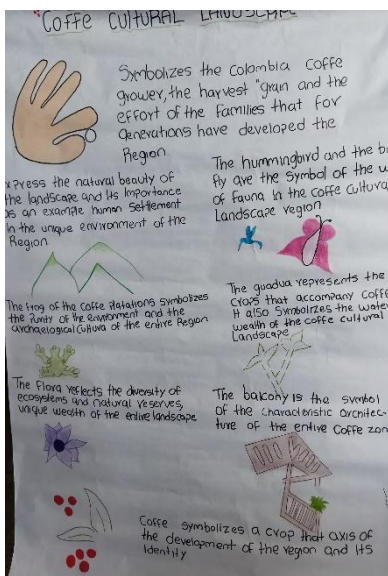 Coffe CULTURAL LANDSCAPE
Symbolizes the Colombia Coffe
grower, the harvest "grain and the
effort of the families that for
generations have developed the
Region
xpress the natural beauty of
the landscape and its importance
as an example human settlement
in the unique environment of the
Region
The hummingbird and the bu
fly are the symbol of the w
of fauna in the coffe cultura
Landscape region
The frog of the coffe platations symbolizes
the purity of the environment and the
archaelogical cultura of the entire Region
The guadua represents the
crops that accompany coffe
It also symbolizes the water
wealth of the coffe cultural
Landscape
The Flora reflects the diversity of
ecosystems and natural reserves,
unique wealth of the entire landscape
The balcony is the symbol
of the characteristic architec-
ture of the entire coffe zon
Coffe symbolizes a crop that axis of
the development of the region and its
Identity